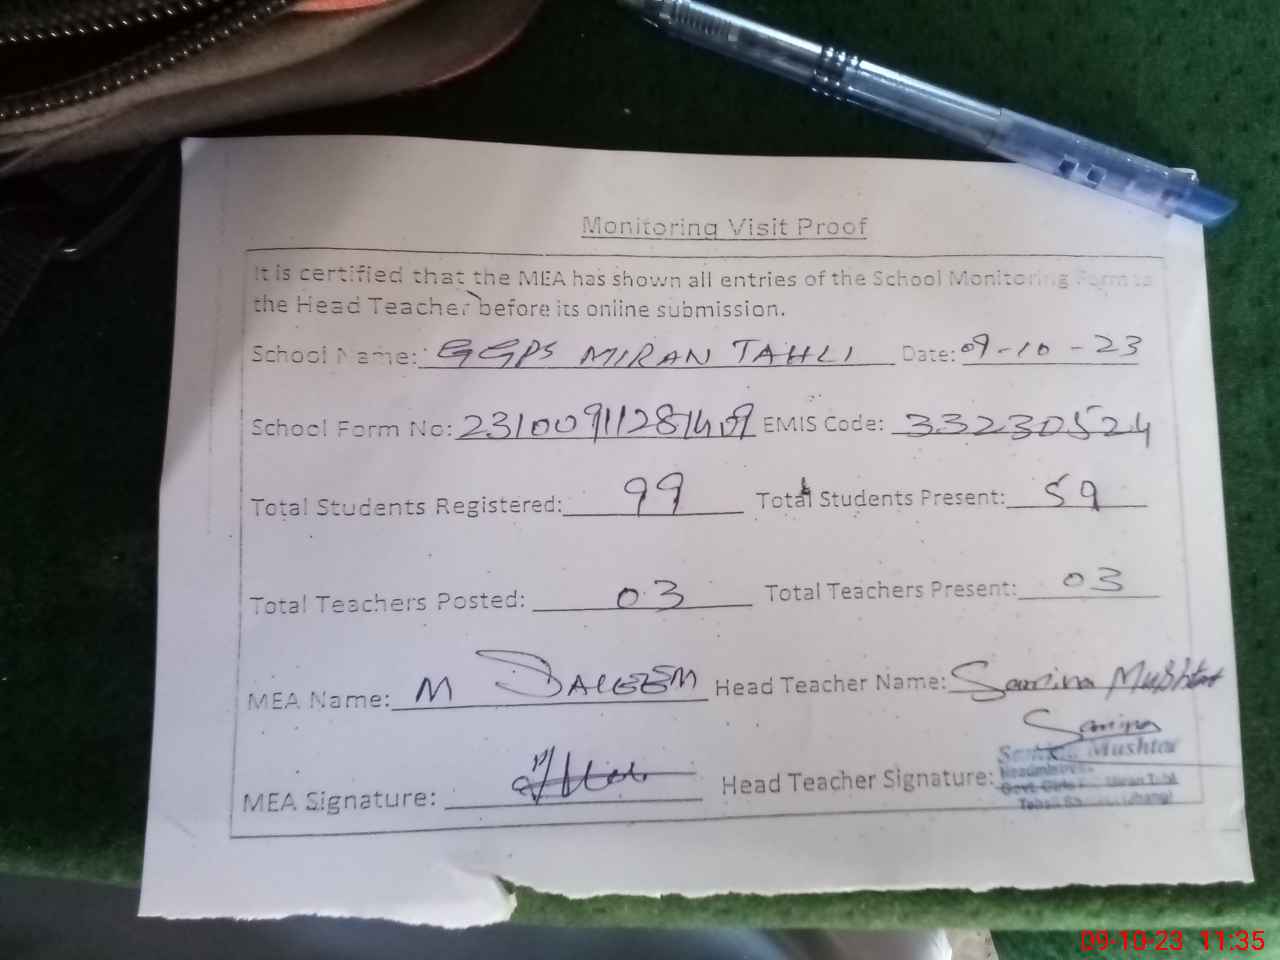 Monitoring Visit Proof
It is certified that the MEA has shown all entries of the School Monitoring Form to
the Head Teacher before its online submission.
School Name: GGPS MIRAN TAHLI Date: 09-10-23
School Form No: 23100911281409 EMIS Code: 33230524
Total Students Registered: 99 Total Students Present: 59
Total Teachers Posted: 03 Total Teachers Present: 03
MEA Name: M SALEEM Head Teacher Name: Samina Mushtaq
Samina
Mushtaq
MEA Signature: Head Teacher Signature:
09-10-23 11:35